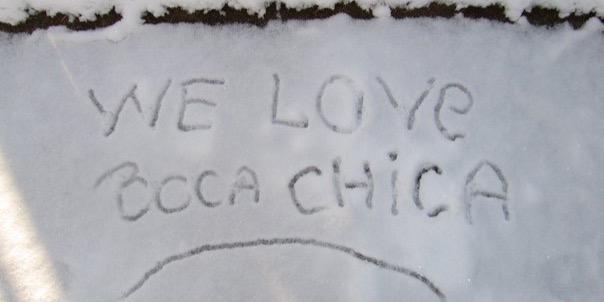 WE LOVe
BOCA CHiCA